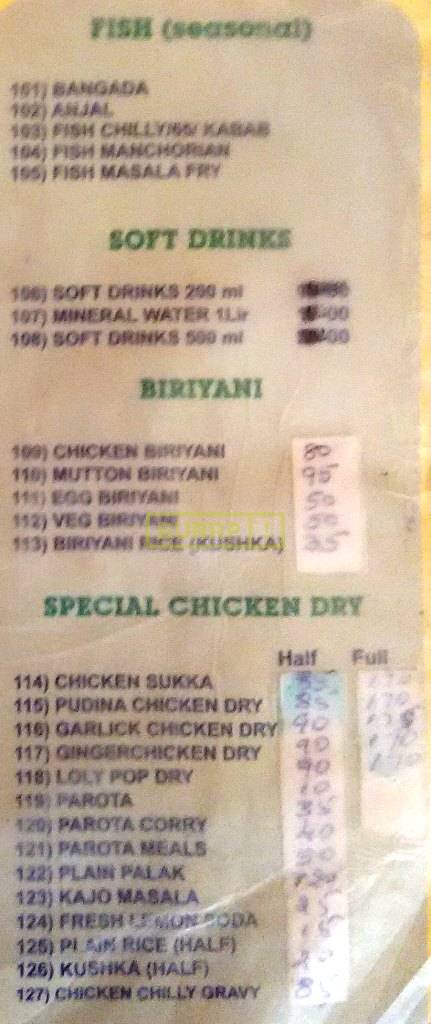 FISH (seasonal)
101) BANGADA
102) ANJAL
103) FISH CHILLY/65/ KABAB
104) FISH MANCHORIAN
105) FISH MASALA FRY
SOFT DRINKS
106) SOFT DRINKS 200 ml
107) MINERAL WATER 1Lir 00
108) SOFT DRINKS 500 ml 00
BIRIYANI
109) CHICKEN BIRIYANI 80
110) MUTTON BIRIYANI 95
111) EGG BIRIYANI 50
112) VEG BIRIYANI 50
113) BIRIYANI RICE (KUSHKA) 35
SPECIAL CHICKEN DRY
Half Full
114) CHICKEN SUKKA 170
115) PUDINA CHICKEN DRY 85 170
116) GARLICK CHICKEN DRY 90
117) GINGERCHICKEN DRY 90 170
118) LOLY POP DRY 90 170
119) PAROTA 10
120) PAROTA CORRY 35
121) PAROTA MEALS 40
122) PLAIN PALAK
123) KAJO MASALA
124) FRESH LEMON SODA
125) PLAIN RICE (HALF)
126) KUSHKA (HALF)
127) CHICKEN CHILLY GRAVY